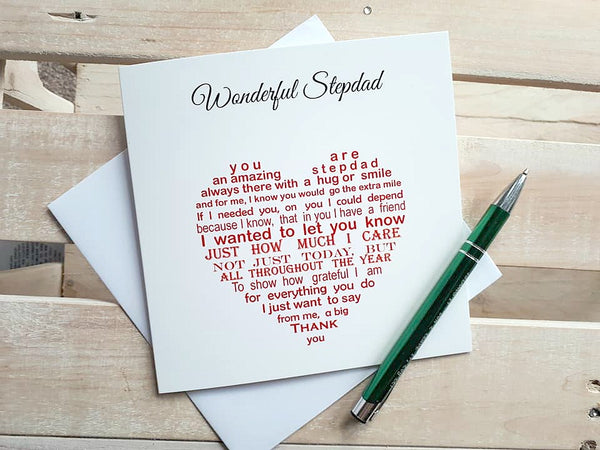 Wonderful Stepdad
you are
an amazing stepdad
always there with a hug or smile
and for me, I know you would go the extra mile
If I needed you, on you I could depend
because I know, that in you I have a friend
I wanted to let you know
JUST HOW MUCH I CARE
NOT JUST TODAY, BUT
ALL THROUGHOUT THE YEAR
To show how grateful I am
for everything you do
I just want to say
from me, a big
THANK
you